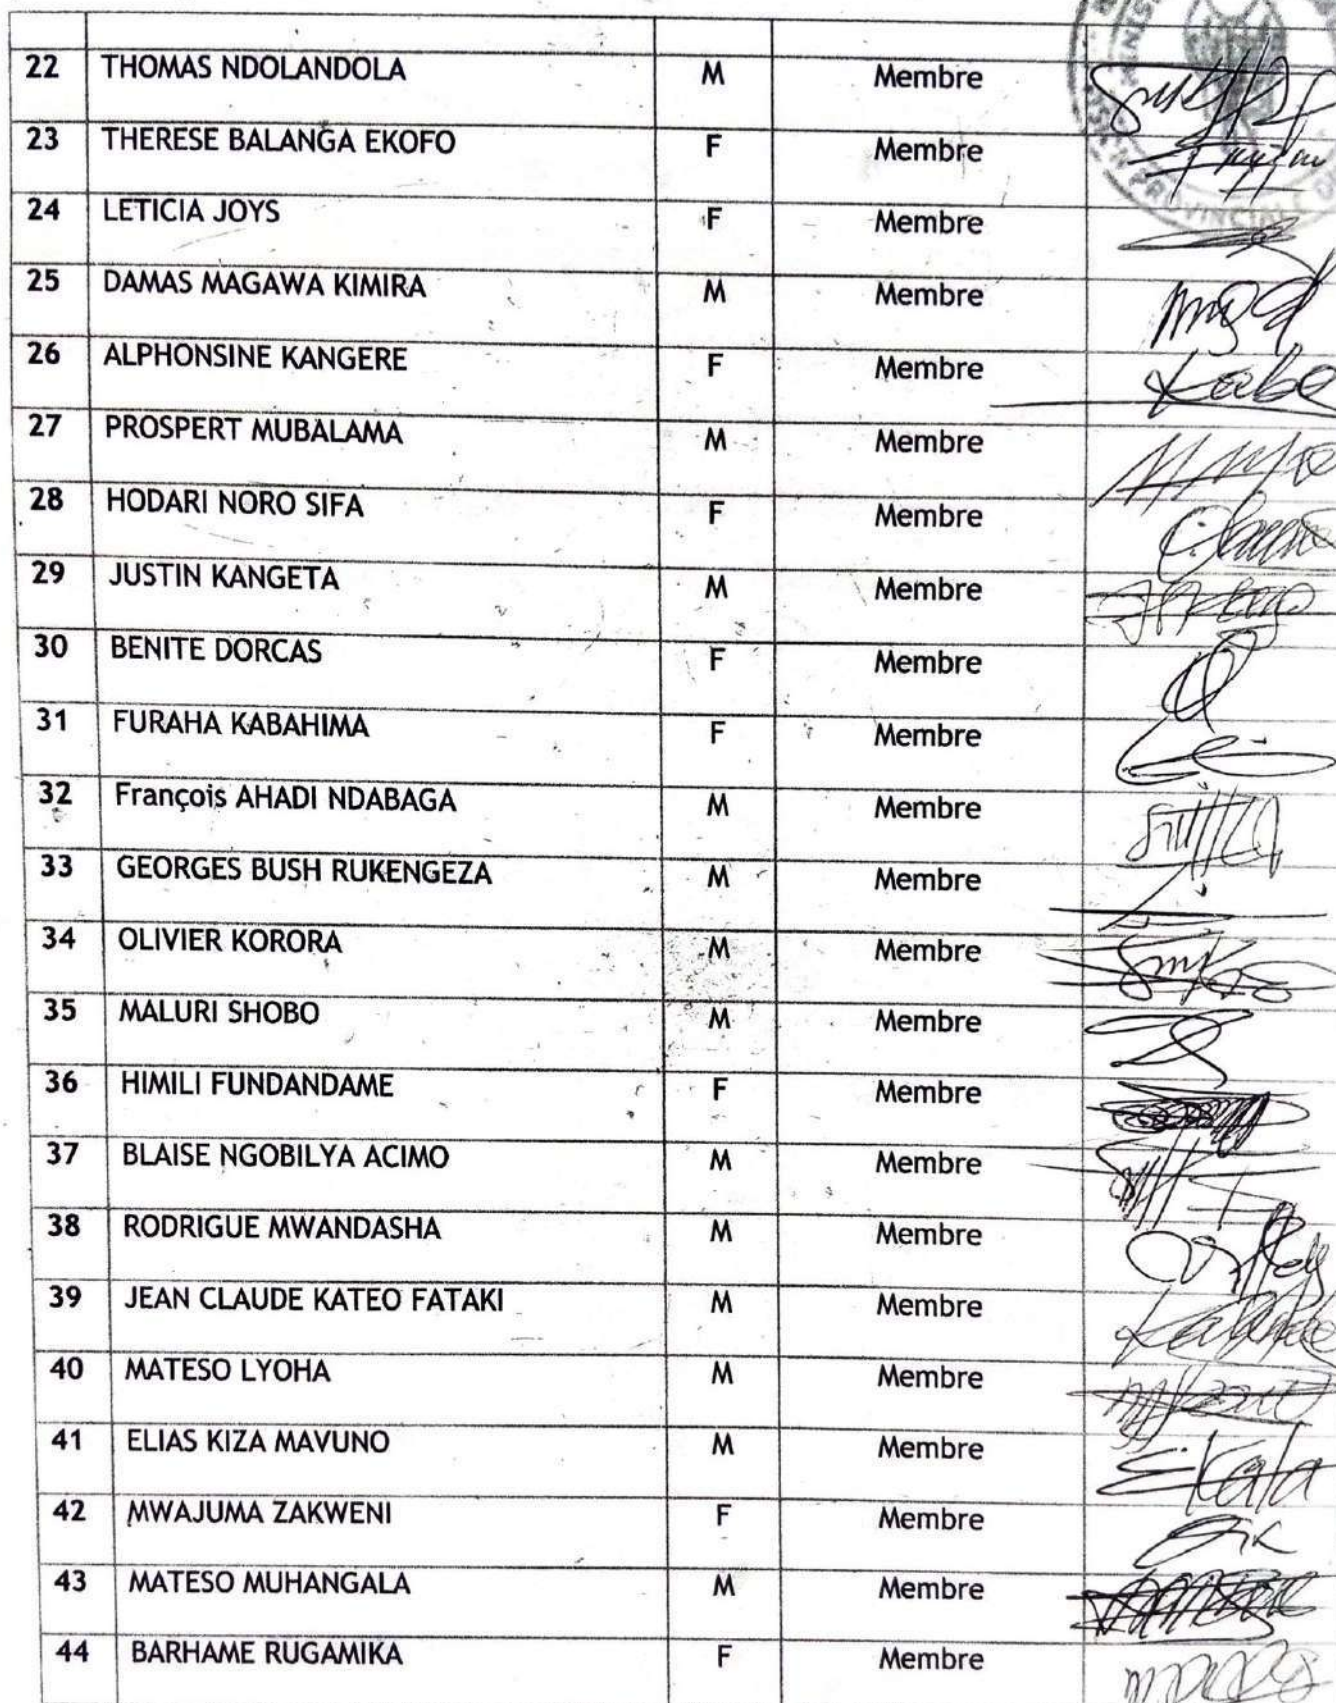 22 THOMAS NDOLANDOLA M Membre
23 THERESE BALANGA EKOFO F Membre
24 LETICIA JOYS F Membre
25 DAMAS MAGAWA KIMIRA M Membre
26 ALPHONSINE KANGERE F Membre
27 PROSPERT MUBALAMA M Membre
28 HODARI NORO SIFA F Membre
29 JUSTIN KANGETA M Membre
30 BENITE DORCAS F Membre
31 FURAHA KABAHIMA F Membre
32 François AHADI NDABAGA M Membre
33 GEORGES BUSH RUKENGEZA M Membre
34 OLIVIER KORORA M Membre
35 MALURI SHOBO M Membre
36 HIMILI FUNDANDAME F Membre
37 BLAISE NGOBILYA ACIMO M Membre
38 RODRIGUE MWANDASHA M Membre
39 JEAN CLAUDE KATEO FATAKI M Membre
40 MATESO LYOHA M Membre
41 ELIAS KIZA MAVUNO M Membre
42 MWAJUMA ZAKWENI F Membre
43 MATESO MUHANGALA M Membre
44 BARHAME RUGAMIKA F Membre
PROVINCIALE